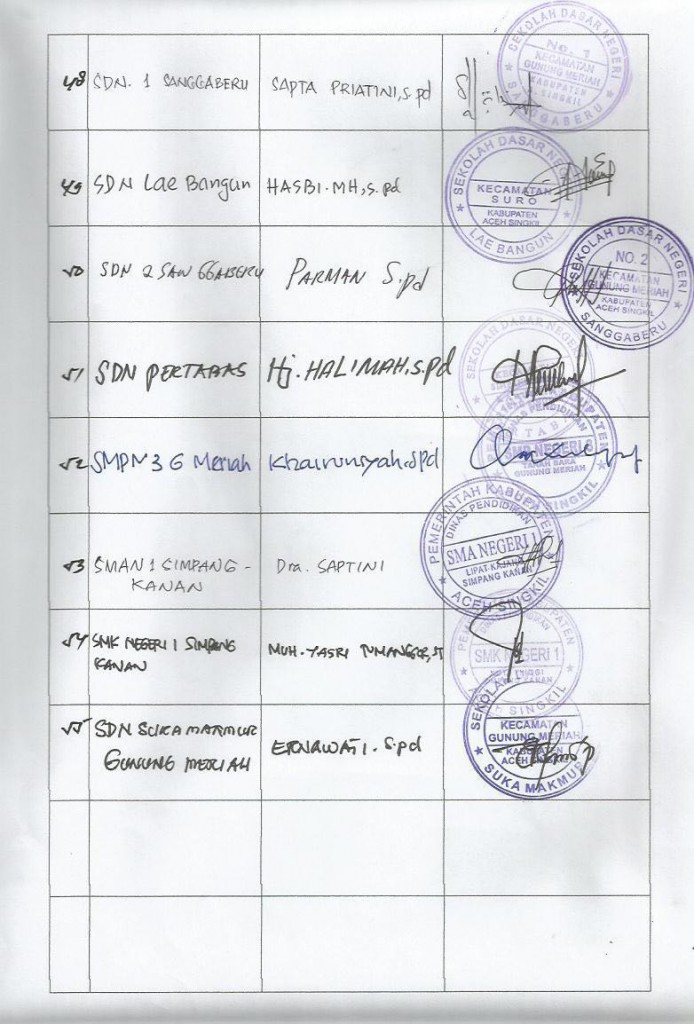 48 SDN. 1 SANGGABERU SAPTA PRIATINI, S.pd
SEKOLAH DASAR NEGERI
No. 1
KECAMATAN
GUNUNG MERIAH
KABUPATEN
A. SINGKIL
SANGGABERU
49 SDN Lae Bangun HASBI.MH, S.pd
SEKOLAH DASAR NEGERI
KECAMATAN
SURO
KABUPATEN
ACEH SINGKIL
LAE BANGUN
50 SDN 2 SANGGABERU PARMAN S.pd
SEKOLAH DASAR NEGERI
NO. 2
KECAMATAN
GUNUNG MERIAH
KABUPATEN
ACEH SINGKIL
SANGGABERU
51 SDN PERTABAS Hj. HALIMAH, S.Pd
SEKOLAH DASAR NEGERI
52 SMPN 3 G Meriah Khairunsyah. Spd
KABUPATEN
DINAS PENDIDIKAN
SMP NEGERI 3
GUNUNG MERIAH
SINGKIL
53 SMAN 1 SIMPANG - Dra. SAPTINI
KANAN
PEMERINTAH KABUPATEN
DINAS PENDIDIKAN
SMA NEGERI 1
LIPAT KAJANG
SIMPANG KANAN
ACEH SINGKIL
54 SMK NEGERI 1 SIMPANG MUH. YASRI TUMANGGER, ST
KANAN
SMK NEGERI 1
SINGKIL
55 SDN SUKA MARMUR ERNAWATI. S.pd
GUNUNG MERIAH
SEKOLAH
KECAMATAN
GUNUNG MERIAH
KABUPATEN
ACEH SINGKIL
SUKA MAKMUR